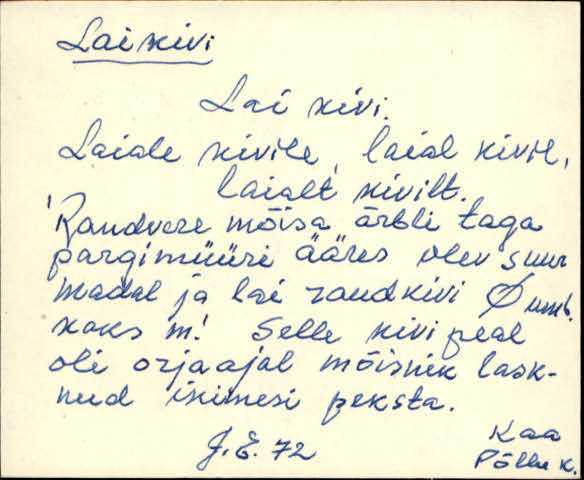 Laikivi
Lai kivi.
Laiale kivile, laial kivil,
laialt kivilt.
'Randvere mõisa ärbli taga
pargimüüri ääres olev suur
madal ja lai raudkivi Ø umb.
kaks m! Selle kivi peal
oli orjaajal mõisnik lask-
nud inimesi peksta.
J.E. 72
Kaa
Põllu k.